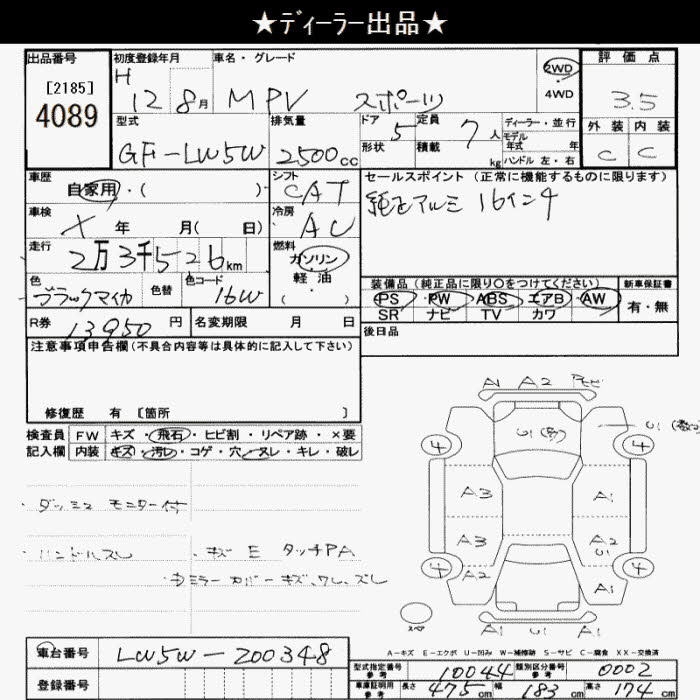 ★ディーラー出品★
出品番号 初度登録年月 車名・グレード 2WD 評価点
[2185] H 12 8月 MPV スポーツ 4WD 3.5
4089 型式 排気量 ドア 5 定員 7人 ディーラー・並行 外装 内装
GF-LW5W 2500cc 形状 積載 kg モデル年式 年 C C
ハンドル 左・右
車歴 シフト セールスポイント (正常に機能するものに限ります)
自家用・( ) CAT 純正アルミ 16インチ
車検 X 年 月( 日) 冷房 AC
走行 2万3千526km 燃料 ガソリン・軽油 ( )
色 ブラックマイカ 色替 色コード 16W 装備品 (純正品に限り○をつけてください) 新車保証書
PS・PW・ABS・エアB・AW 有・無
SR ナビ TV カワ
R券 13950円 名変期限 月 日 後日品
注意事項申告欄(不具合内容等は具体的に記入して下さい)
修復歴 有 [箇所 ]
検査員 FW キズ・飛石・ヒビ割・リペア跡・×要
記入欄 内装 キズ・汚レ・コゲ・穴・ヌレ・キレ・破レ
A1 A2
U1
4 4
A3 A1
A3 A2
U1
4 A2 4
A1
A1 U1 A1
・ダッシュ モニター付
・ハンドルスレ ・キズ E タッチPA
・ミラー カバー キズ、ワレ、ズレ
A-キズ E-エクボ U-凹み W-補修跡 S-サビ C-腐食 XX-交換済
車台番号 LW5W-200348
登録番号
型式指定番号 参考 10044 類別区分番号 参考 0002
車庫証明用 参考 長さ 475cm 幅 183cm 高さ 174cm